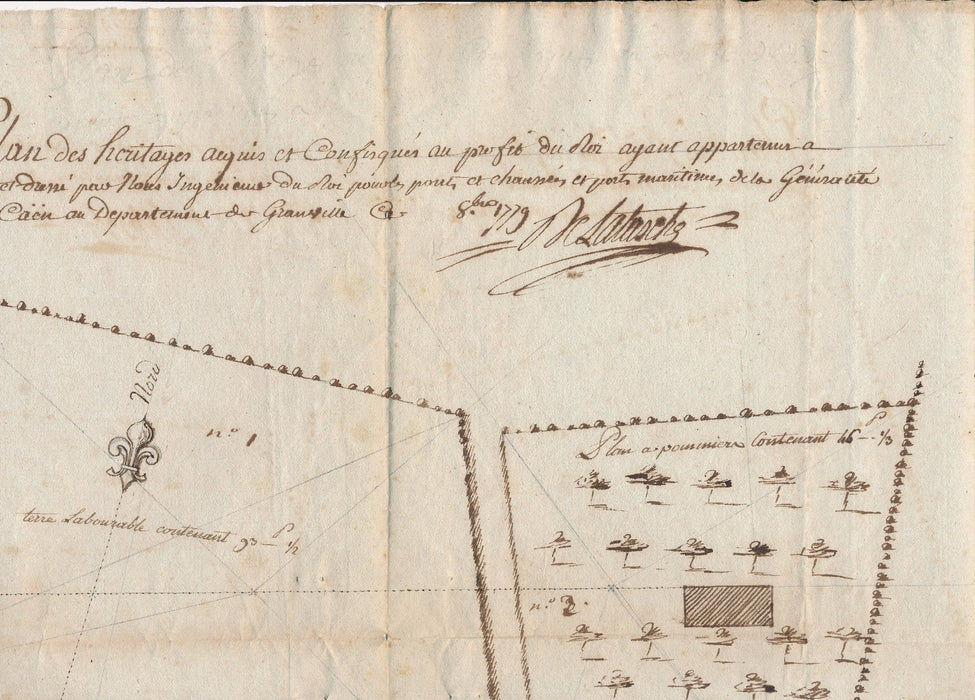 Plan des heritages acquis et Confisqués au profit du Roi ayant appartenus a
et dressé par Nous Ingenieur du Roi pour les ponts et chaussées et ports maritimes de la Généralité
Caën au Departement de Granville Ce 8.bre 1779 De Latusche
Nord
n.o 1
terre Labourable contenant 93 P 1/2
Plan a pommiers Contenant 46 P 1/3
n.o 2.